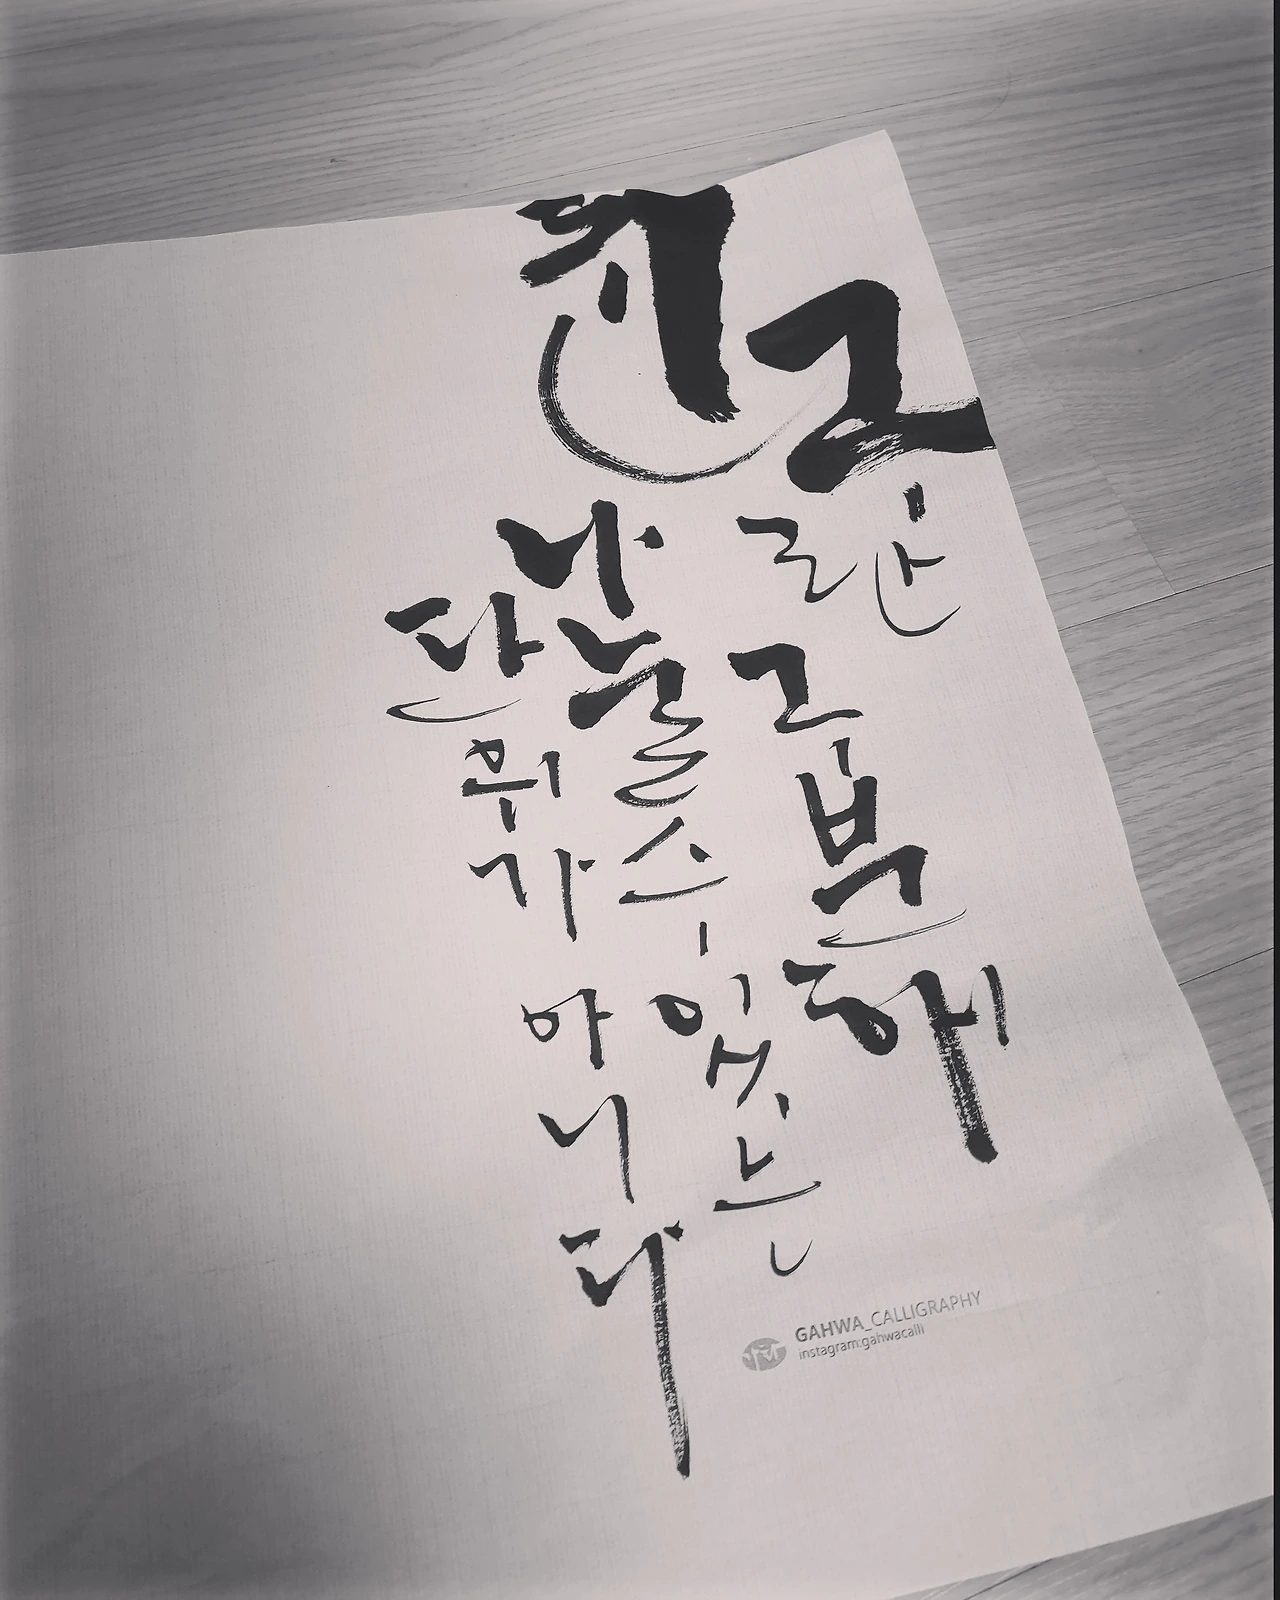 친구
란 구분해
나눌 수 있는
단위가 아니다
GAHWA_CALLIGRAPHY
instagram:gahwacalli